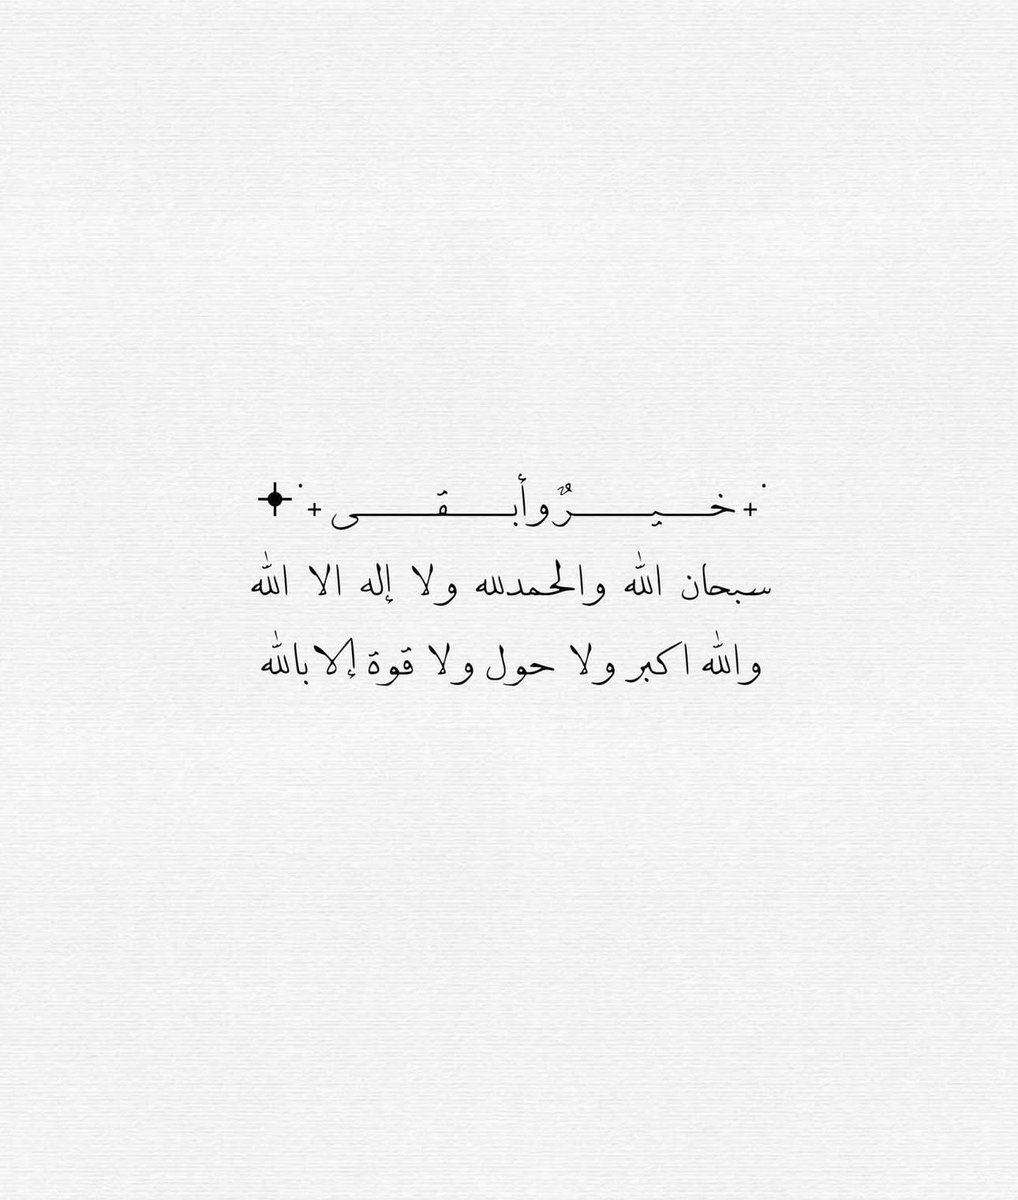 ˙+ خـــيـــرٌ وأبـــقـــى +˙ ⌖
سبحان الله والحمدلله ولا إله الا الله
والله اكبر ولا حول ولا قوة إلا بالله